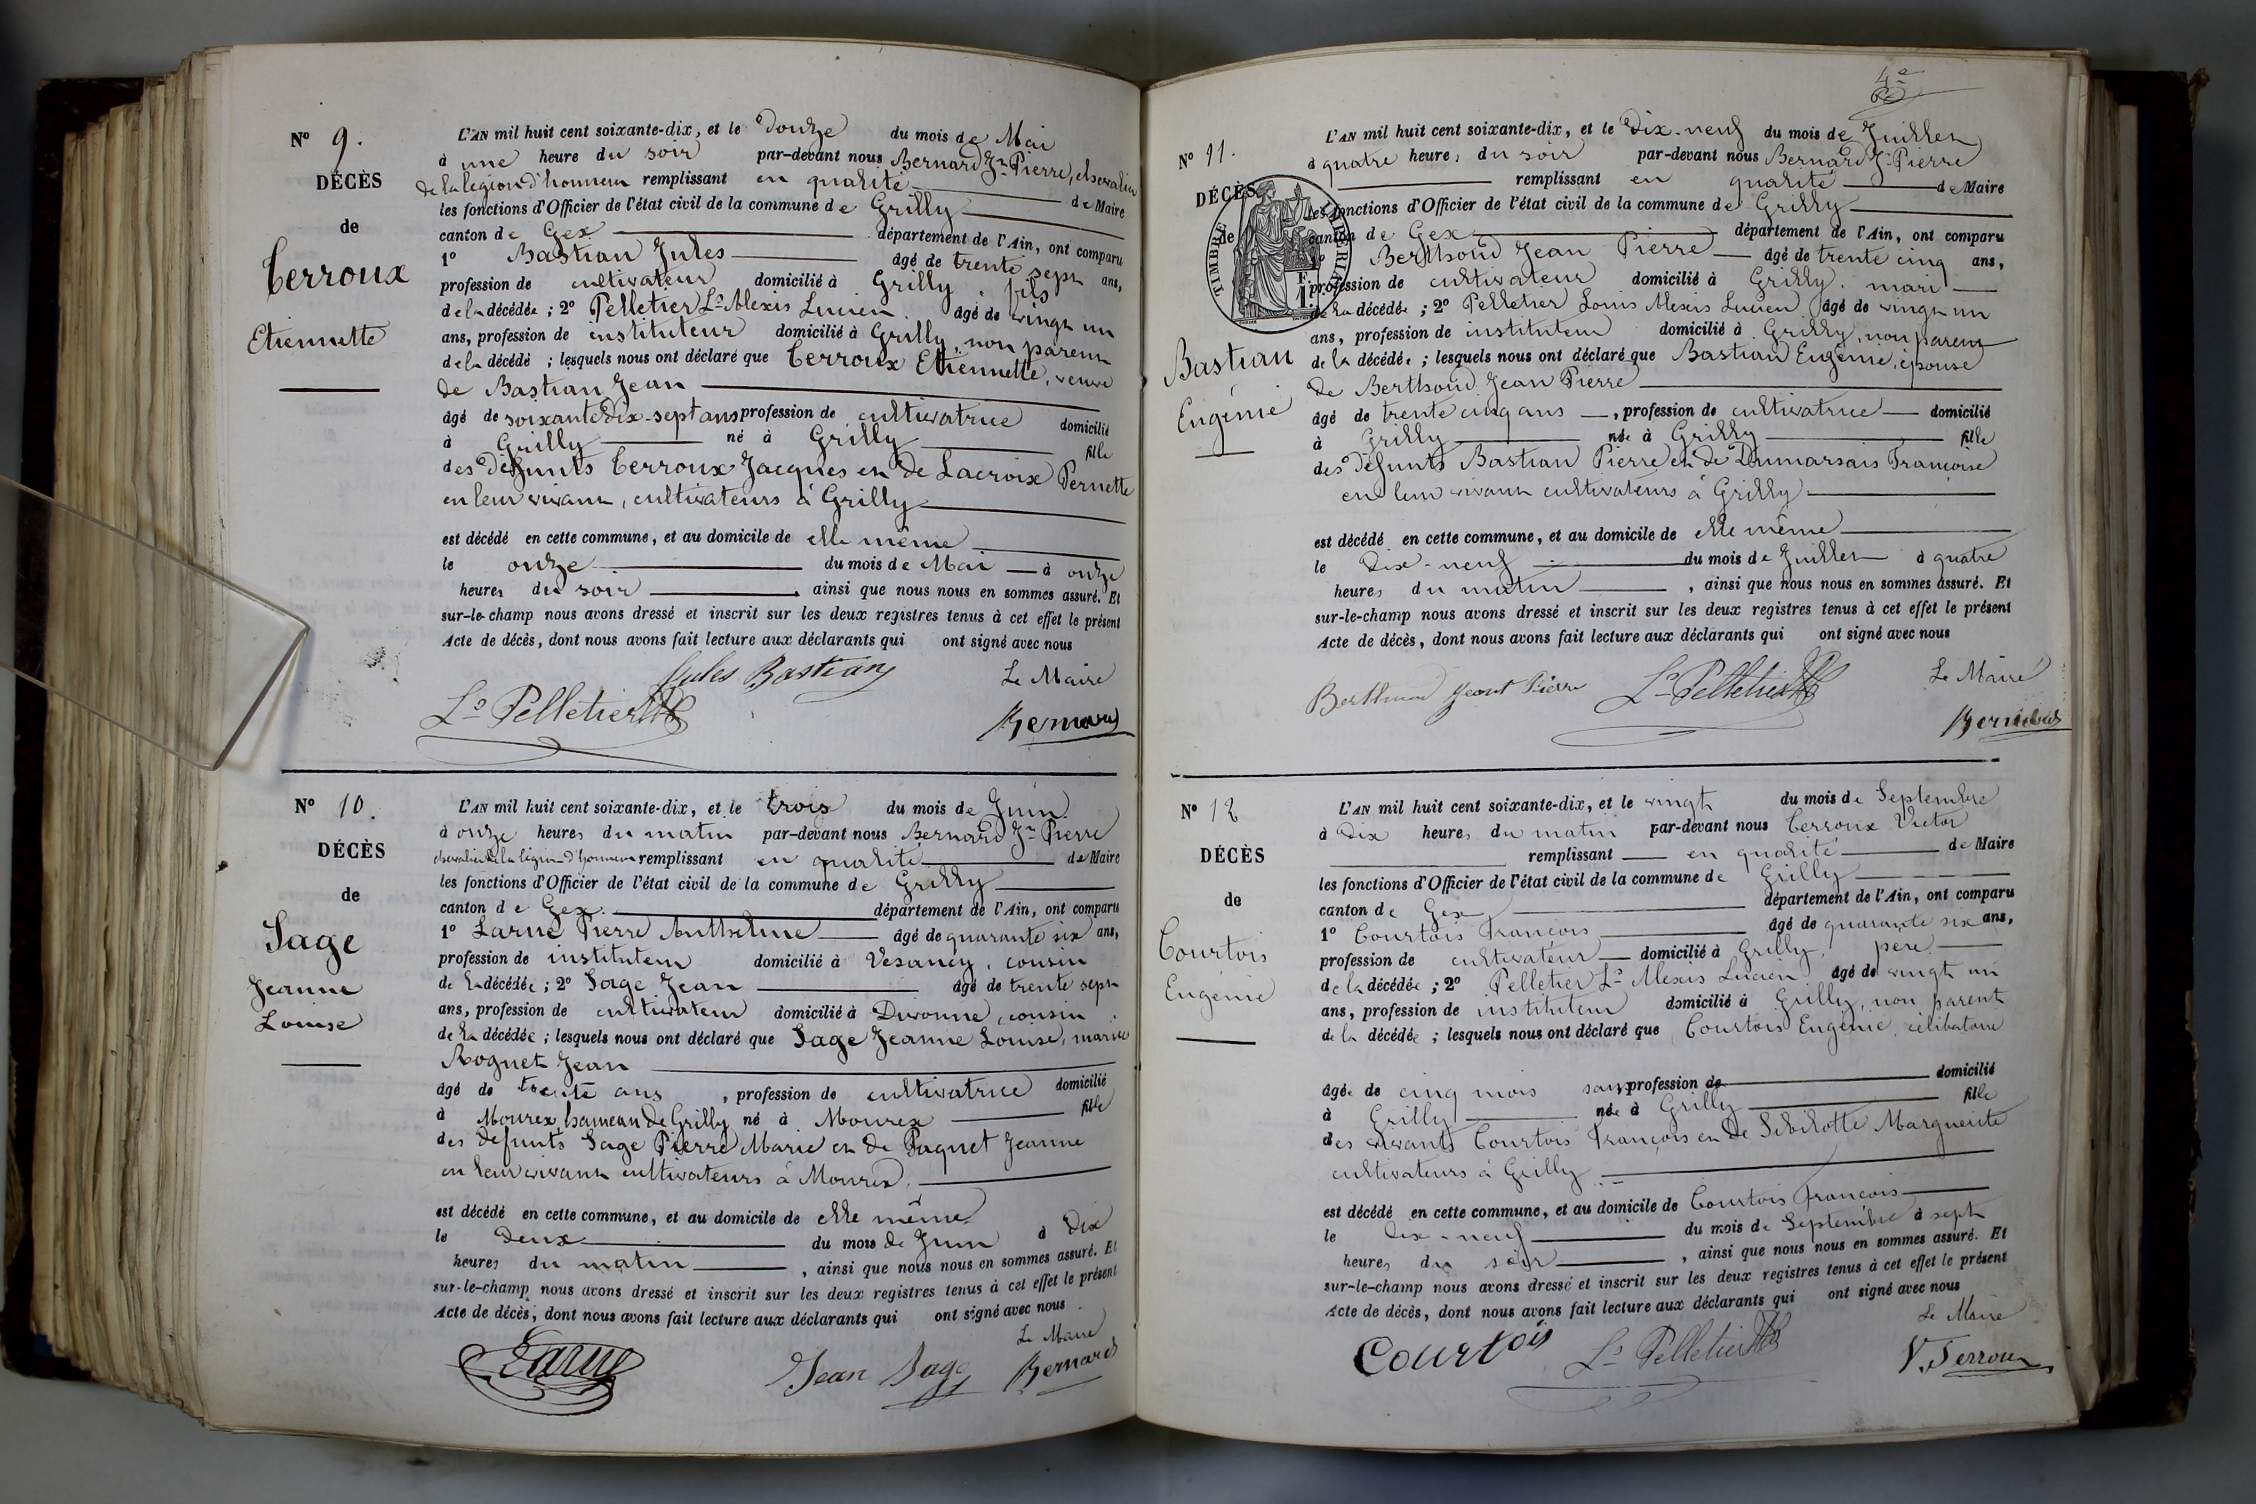 N° 9.
DÉCÈS
de
Terroux
Etiennette
L'AN mil huit cent soixante-dix, et le Douze du mois de Mai
à une heure du soir par-devant nous Bernard Jn Pierre, chevalier
de la légion d'honneur remplissant en qualité de Maire
les fonctions d'Officier de l'état civil de la commune de Grilly
canton de Gex département de l'Ain, ont comparu
1° Bastian Jules âgé de trente sept ans,
profession de cultivateur domicilié à Grilly, fils
de la décédée ; 2° Pelletier Ls Alexis Lucien âgé de vingt un
ans, profession de instituteur domicilié à Grilly, non parent
de la décédé ; lesquels nous ont déclaré que Terroux Etiennette, veuve
de Bastian Jean
âgé de soixante dix-sept ans profession de cultivatrice domicilié
à Grilly né à Grilly fille
des défunts Terroux Jacques et de Lacroix Pernette
en leur vivant, cultivateurs à Grilly
est décédé en cette commune, et au domicile de elle même
le onze du mois de Mai à onze
heures du soir, ainsi que nous nous en sommes assuré. Et
sur-le-champ nous avons dressé et inscrit sur les deux registres tenus à cet effet le présent
Acte de décès, dont nous avons fait lecture aux déclarants qui ont signé avec nous
Jules Bastian
Le Maire
Ls Pelletier
Bernard
N° 10.
DÉCÈS
de
Sage
Jeanne
Louise
L'AN mil huit cent soixante-dix, et le trois du mois de Juin
à onze heures du matin par-devant nous Bernard Jn Pierre
chevalier de la légion d'honneur remplissant en qualité de Maire
les fonctions d'Officier de l'état civil de la commune de Grilly
canton de Gex. département de l'Ain, ont comparu
1° Larue Pierre Anthelme âgé de quarante six ans,
profession de instituteur domicilié à Vesancy, cousin
de la décédée ; 2° Sage Jean âgé de trente sept
ans, profession de cultivateur domicilié à Divonne, cousin
de la décédée ; lesquels nous ont déclaré que Sage Jeanne Louise, mariée
Roguet Jean
âgé de trente ans, profession de cultivatrice domicilié
à Mourex, hameau de Grilly né à Mourex fille
des défunts Sage Pierre Marie et de Paquet Jeanne
en leur vivant cultivateurs à Mourex,
est décédé en cette commune, et au domicile de elle même
le deux du mois de Juin à dix
heures du matin, ainsi que nous nous en sommes assuré. Et
sur-le-champ nous avons dressé et inscrit sur les deux registres tenus à cet effet le présent
Acte de décès, dont nous avons fait lecture aux déclarants qui ont signé avec nous
Le Maire
Larue
Jean Sage
Bernard
4e
N° 11.
DÉCÈS
de
TIMBRE IMPÉRIAL
Bastian
Eugénie
L'AN mil huit cent soixante-dix, et le Dix-neuf du mois de Juillet
à quatre heures du soir par-devant nous Bernard Jn Pierre
remplissant en qualité de Maire
les fonctions d'Officier de l'état civil de la commune de Grilly
canton de Gex département de l'Ain, ont comparu
1° Berthoud Jean Pierre âgé de trente cinq ans,
profession de cultivateur domicilié à Grilly. mari
de la décédée ; 2° Pelletier Louis Alexis Lucien âgé de vingt un
ans, profession de instituteur domicilié à Grilly, non parent
de la décédée ; lesquels nous ont déclaré que Bastian Eugénie, épouse
de Berthoud Jean Pierre
âgé de trente cinq ans, profession de cultivatrice domicilié
à Grilly née à Grilly fille
des défunts Bastian Pierre et de Dumarsais Françoise
en leur vivant cultivateurs à Grilly
est décédé en cette commune, et au domicile de elle même
le Dix-neuf du mois de Juillet à quatre
heures du matin, ainsi que nous nous en sommes assuré. Et
sur-le-champ nous avons dressé et inscrit sur les deux registres tenus à cet effet le présent
Acte de décès, dont nous avons fait lecture aux déclarants qui ont signé avec nous
Le Maire
Berthoud Jean Pierre
Ls Pelletier
Bernard
N° 12
DÉCÈS
de
Courtois
Eugénie
L'AN mil huit cent soixante-dix, et le vingt du mois de Septembre
à dix heures du matin par-devant nous Terroux Victor
remplissant en qualité de Maire
les fonctions d'Officier de l'état civil de la commune de Grilly
canton de Gex département de l'Ain, ont comparu
1° Courtois François âgé de quarante six ans,
profession de cultivateur domicilié à Grilly, père
de la décédée ; 2° Pelletier Ls Alexis Lucien âgé de vingt un
ans, profession de instituteur domicilié à Grilly, non parent
de la décédée ; lesquels nous ont déclaré que Courtois Eugénie, célibataire
âgée de cinq mois sans profession de domicilié
à Grilly née à Grilly fille
des vivants Courtois François et de Sibilotte Marguerite
cultivateurs à Grilly
est décédé en cette commune, et au domicile de Courtois François
le dix-neuf du mois de Septembre à sept
heures du soir, ainsi que nous nous en sommes assuré. Et
sur-le-champ nous avons dressé et inscrit sur les deux registres tenus à cet effet le présent
Acte de décès, dont nous avons fait lecture aux déclarants qui ont signé avec nous
Le Maire
Courtois
Ls Pelletier
V. Terroux